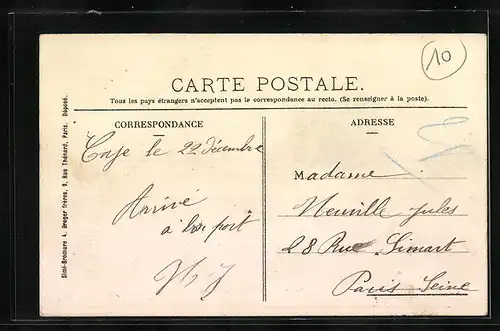 10
CARTE POSTALE.
Tous les pays étrangers n'acceptent pas le correspondance au recto. (Se renseigner à la poste).
CORRESPONDANCE
le 22 Décembre
Arrivé
à bon port
ADRESSE
Madame
Neuville Jules
28 Rue Simart
Paris Seine
Simi-Bromure A. Breger frères, 9, Rue Thénard, Paris. Déposé.